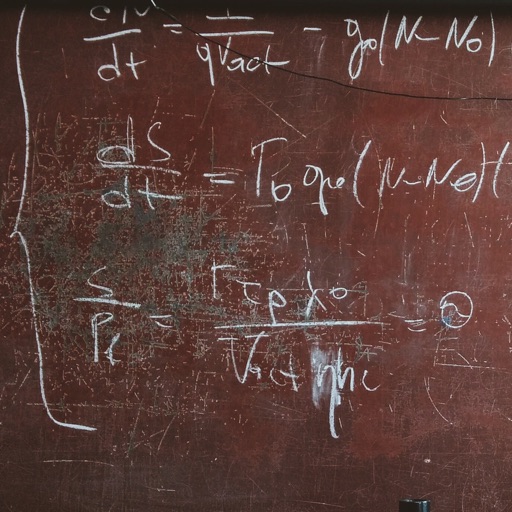 dN/dt = I/qVact - g0(N-N0)
dS/dt = Γ0 g0(N-N0)(
S/Pf = Γτpλ0/Vact ηhc = Θ